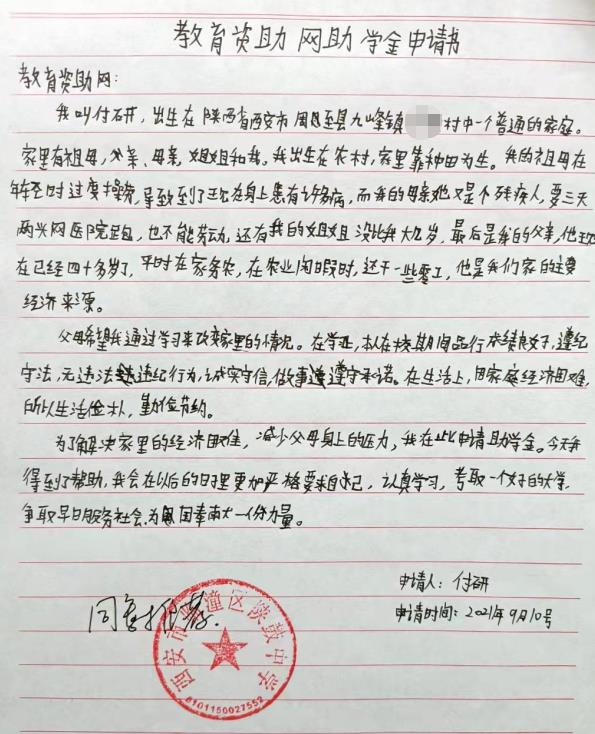 教育资助网助学金申请书
教育资助网:
我叫付研,出生在陕西省西安市周至县九峰镇 村中一个普通的家庭。
家里有祖母,父亲、母亲,姐姐和我。我出生在农村,家里靠种田为生。我的祖母在
年轻时过度操劳,导致到了现在身上患有许多病,而我的母亲她又是个残疾人,要三天
两头网医院里跑,也不能劳动,还有我的姐姐没比我大几岁,最后是我的父亲,他现
在已经四十多岁了,平时在家务农,在农业闲暇时,还干一些零工,他是我们家的主要
经济来源。
父母希望我通过学习来改变家里的情况。在学业,本人在校期间品行成绩良好,遵纪
守法,无违法违纪行为,诚实守信,做事遵守承诺。在生活上,因家庭经济困难,
所以生活俭朴,勤俭节约。
为了解决家里的经济困难,减少父母身上的压力,我在此申请助学金。今天我
得到了帮助,我会在以后的日里更加严格要求自己,认真学习,考取一个好的大学,
争取早日服务社会,为国奉献一份力量。
申请人:付研
同意推荐.
申请时间:2021年9月10号
西安市临潼区陕鼓中学
6101150027552